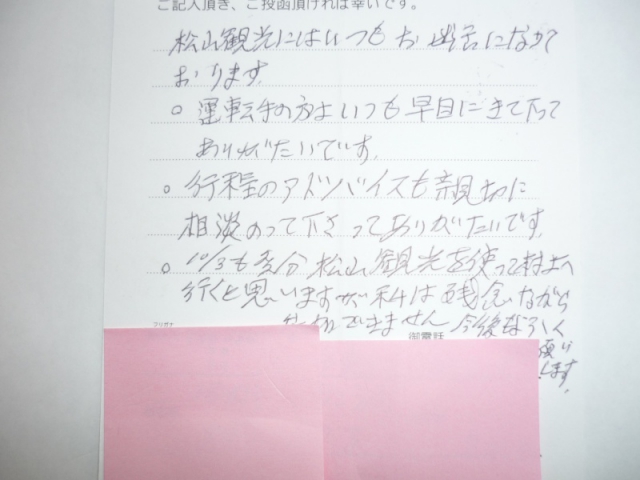 ご記入頂き、ご投函頂ければ幸いです。
松山観光にはいつもお世話になって
おります。
○ 運転手の方はいつも早目にきて下って
ありがたいです。
○ 行程のアドバイスも親切に
相談のって下さってありがたいです。
○ 10/3も多分松山観光を使って村上へ
行くと思いますが私は残念ながら
できません 今後もよろしく
フリガナ
御電話
願い
します